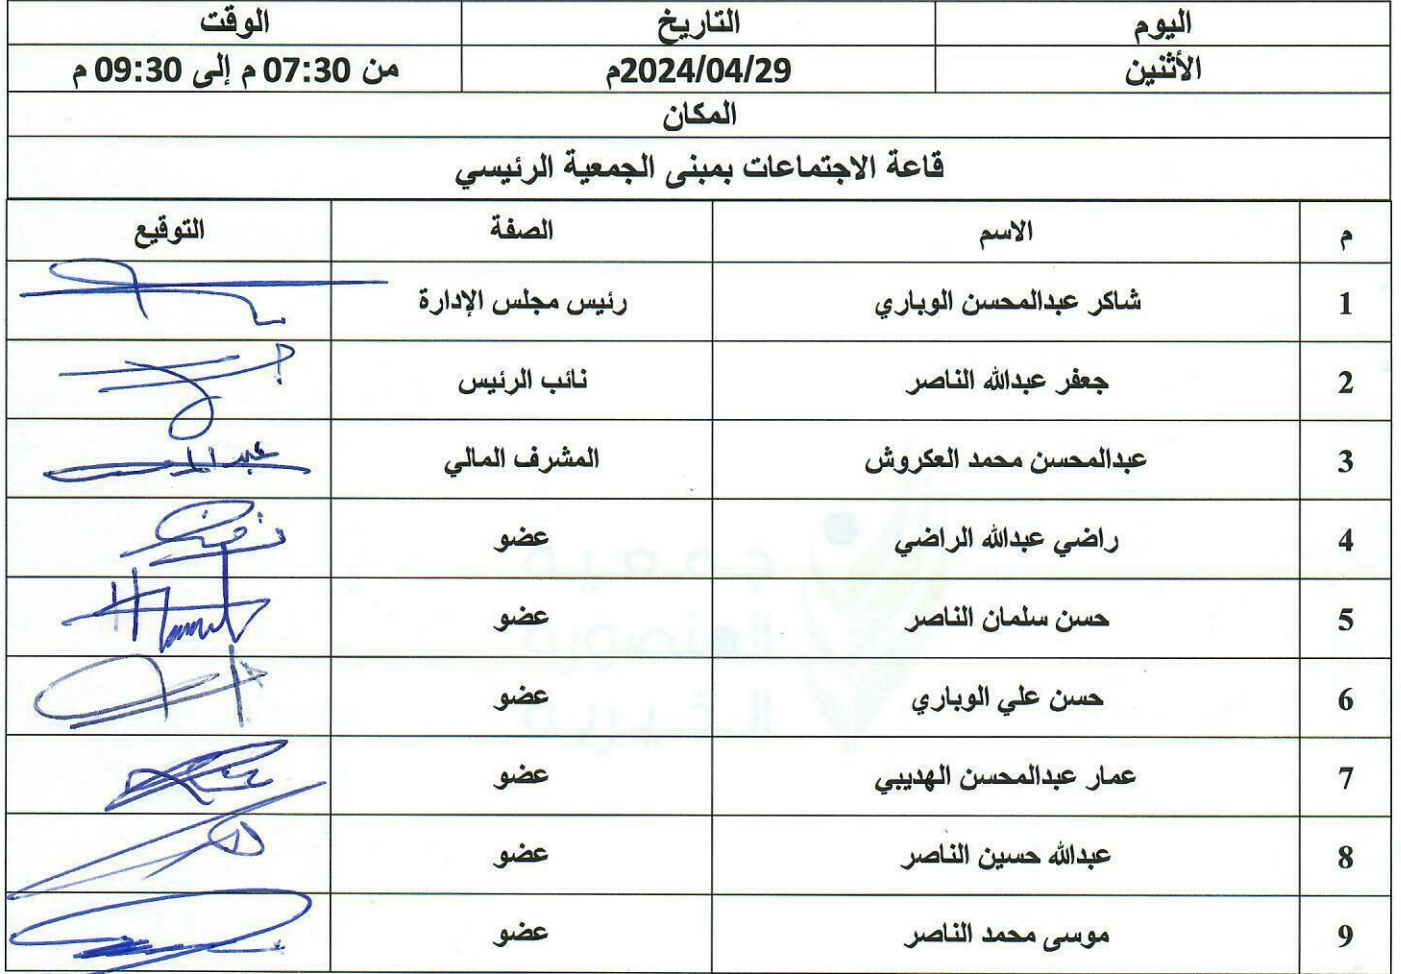 اليوم التاريخ الوقت
الأثنين 2024/04/29م من 07:30 م إلى 09:30 م
المكان
قاعة الاجتماعات بمبنى الجمعية الرئيسي
م الاسم الصفة التوقيع
1 شاكر عبدالمحسن الوباري رئيس مجلس الإدارة
2 جعفر عبدالله الناصر نائب الرئيس
3 عبدالمحسن محمد العكروش المشرف المالي
4 راضي عبدالله الراضي عضو
5 حسن سلمان الناصر عضو
6 حسن علي الوباري عضو
7 عمار عبدالمحسن الهديبي عضو
8 عبدالله حسين الناصر عضو
9 موسى محمد الناصر عضو
جمعية
المنصورة
الخيرية